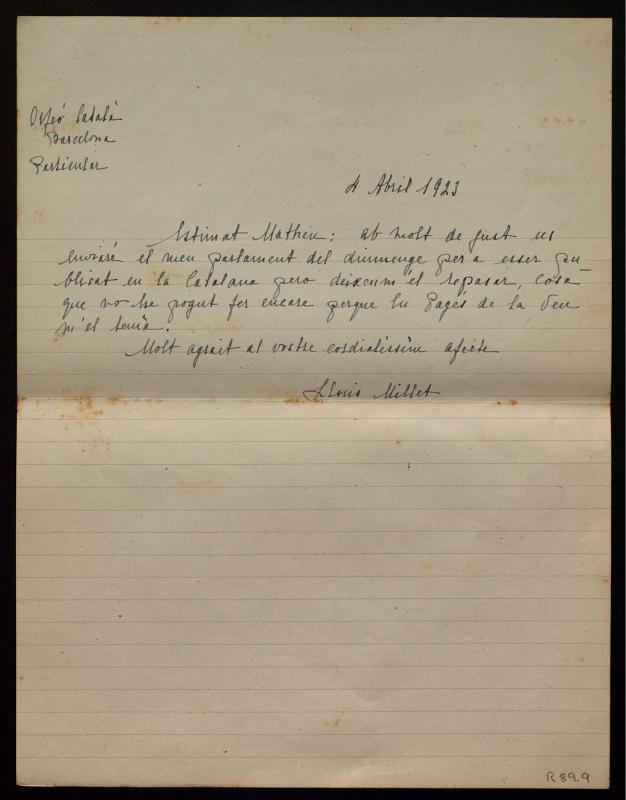 Orfeó Català
Barcelona
Particular
4 Abril 1923
Estimat Matheu: ab molt de gust us
enviaré el meu parlament del diumenge per a esser pu
blicat en la Catalana pero deixeum'el repasar, cosa
que no he pogut fer encare perque en Pagés de la Veu
m'el tenia.
Molt agrait al vostre cordialissim afecte
Lluis Millet
R 89.9